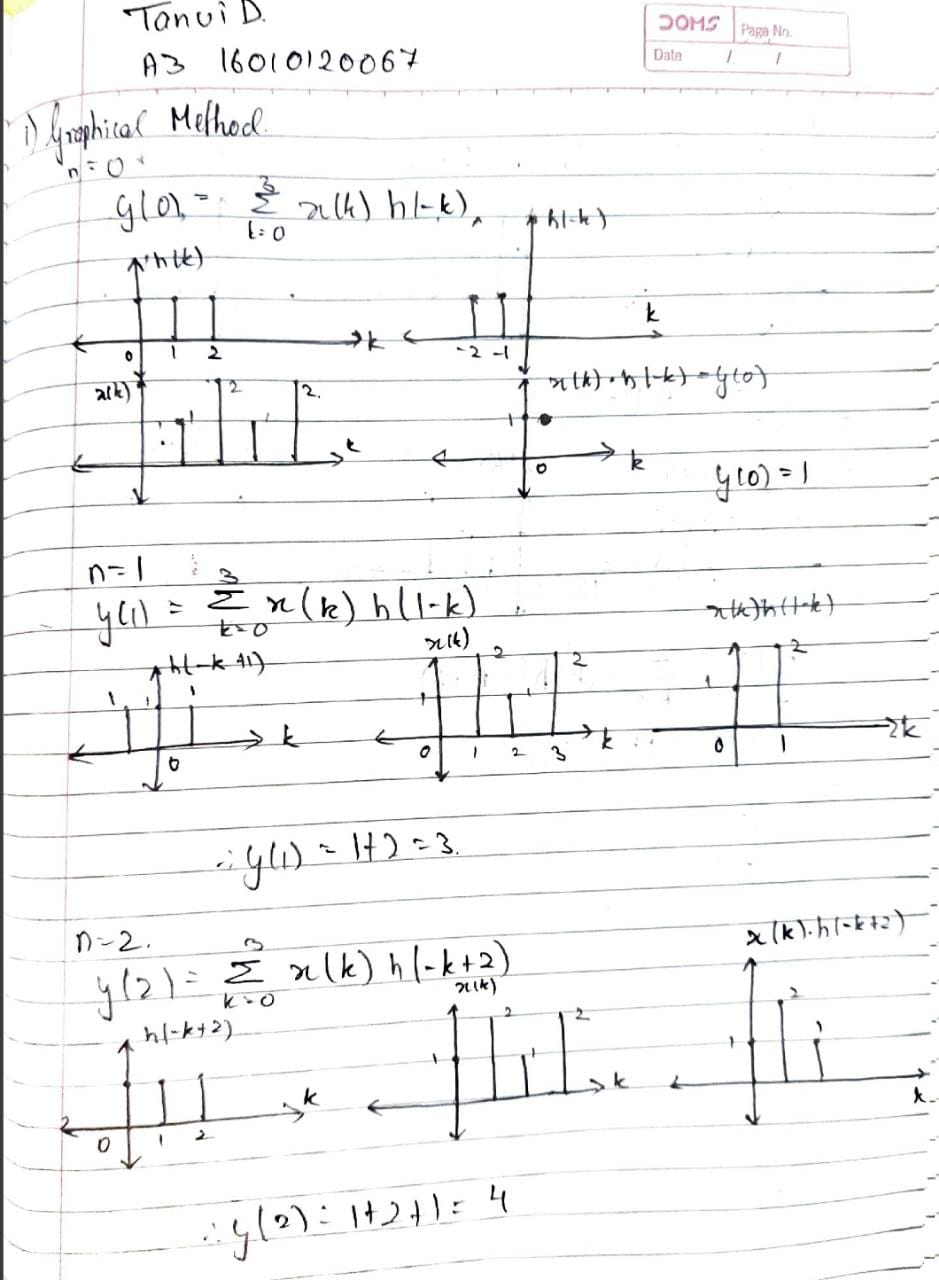 Tanvi D.
A3 16010120067
DOMS
Page No.
Date / /
i) Graphical Method.
n=0
y(0) = 3 Σ k=0 x(k) h(-k)
h(k)
0 1 2 k
h(-k)
-2 -1 k
x(k)
1 2 1 2
k
x(k)·h(-k)=y(0)
1
0 k
y(0)=1
n=1
y(1) = 3 Σ k=0 x(k) h(1-k)
h(-k+1)
1 1 1
0 k
x(k)
1 2 1 2
0 1 2 3 k
x(k)h(1-k)
1 2
0 1 k
∴ y(1) = 1+2 = 3.
n=2.
y(2) = 3 Σ k=0 x(k) h(-k+2)
h(-k+2)
0 1 2 k
x(k)
1 2 1 2
k
x(k)·h(-k+2)
1 2 1
k
∴ y(2) = 1+2+1 = 4